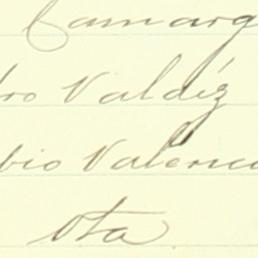 Camarg
dro Valdéz
bio Valenc
ota